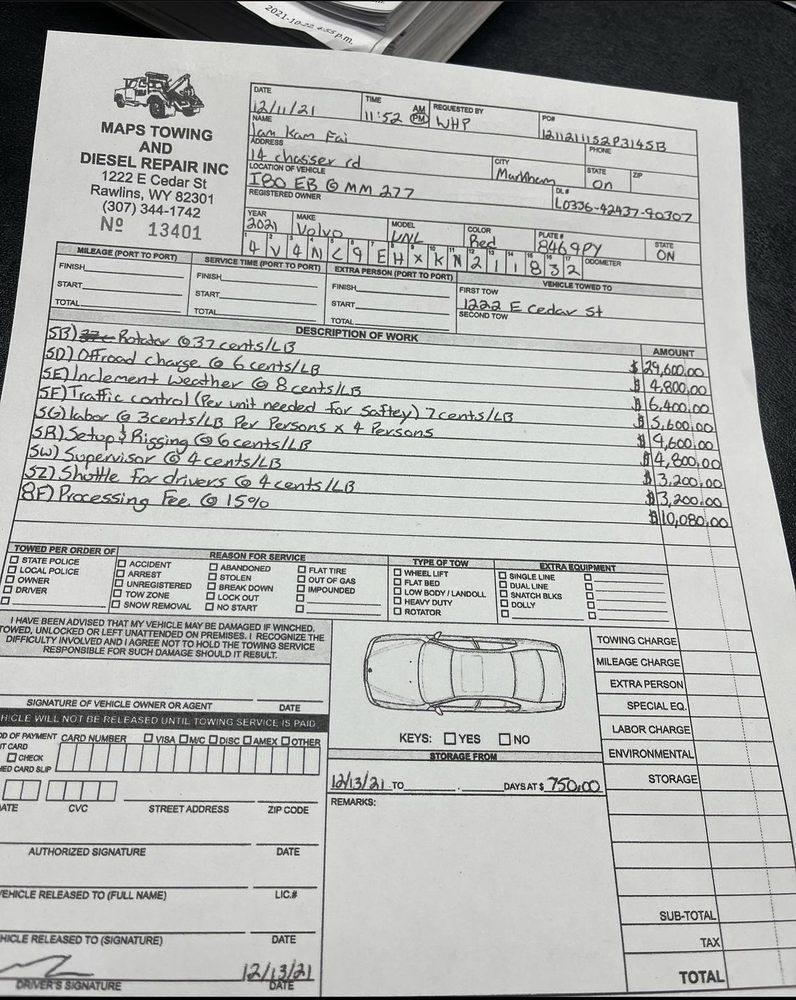 2021-10-22 4:55 p.m.
MAPS TOWING
AND
DIESEL REPAIR INC
1222 E Cedar St
Rawlins, WY 82301
(307) 344-1742
Nº 13401
DATE 12/11/21 TIME 11:52 AM PM REQUESTED BY WHP PO# 1211211152P3145B
NAME Lam Kam Fai PHONE
ADDRESS 14 chasser rd CITY Markham STATE On ZIP
LOCATION OF VEHICLE I80 EB @ MM 277
REGISTERED OWNER DL# L0336-42437-90307
YEAR 2021 MAKE Volvo MODEL VNL COLOR Red PLATE# 8469PY STATE ON
1 2 3 4 5 6 7 8 9 10 11 12 13 14 15 16 17
4 V 4 N C 9 E H X K N 2 1 1 8 3 2 ODOMETER
MILEAGE (PORT TO PORT) SERVICE TIME (PORT TO PORT) EXTRA PERSON (PORT TO PORT) VEHICLE TOWED TO
FINISH FINISH FINISH FIRST TOW
START START START 1222 E Cedar St
TOTAL TOTAL TOTAL SECOND TOW
DESCRIPTION OF WORK AMOUNT
5B) Rotator @ 37 cents/LB $29,600.00
5D) Offroad charge @ 6 cents/LB $4,800.00
5E) Inclement weather @ 8 cents/LB $6,400.00
5F) Traffic control (Per unit needed for saftey) 7 cents/LB $5,600.00
5G) labor @ 3cents/LB Per Persons x 4 Persons $9,600.00
5R) Setup & Rigging @ 6 cents/LB $4,800.00
5W) Supervisor @ 4 cents/LB $3,200.00
5Z) Shuttle for drivers @ 4 cents/LB $3,200.00
8F) Processing Fee @ 15% $10,080.00
TOWED PER ORDER OF REASON FOR SERVICE TYPE OF TOW EXTRA EQUIPMENT
STATE POLICE ACCIDENT ABANDONED FLAT TIRE WHEEL LIFT SINGLE LINE
LOCAL POLICE ARREST STOLEN OUT OF GAS FLAT BED DUAL LINE
OWNER UNREGISTERED BREAK DOWN IMPOUNDED LOW BODY / LANDOLL SNATCH BLKS
DRIVER TOW ZONE LOCK OUT HEAVY DUTY DOLLY
SNOW REMOVAL NO START ROTATOR
I HAVE BEEN ADVISED THAT MY VEHICLE MAY BE DAMAGED IF WINCHED,
TOWED, UNLOCKED OR LEFT UNATTENDED ON PREMISES. I RECOGNIZE THE
DIFFICULTY INVOLVED AND I AGREE NOT TO HOLD THE TOWING SERVICE
RESPONSIBLE FOR SUCH DAMAGE SHOULD IT RESULT.
SIGNATURE OF VEHICLE OWNER OR AGENT DATE
HICLE WILL NOT BE RELEASED UNTIL TOWING SERVICE IS PAID.
OD OF PAYMENT CARD NUMBER VISA M/C DISC AMEX OTHER
IT CARD
CHECK
HED CARD SLIP
ATE CVC STREET ADDRESS ZIP CODE
AUTHORIZED SIGNATURE DATE
VEHICLE RELEASED TO (FULL NAME) LIC.#
HICLE RELEASED TO (SIGNATURE) DATE
12/13/21
DRIVER'S SIGNATURE DATE
KEYS: YES NO
STORAGE FROM
12/13/21 TO DAYS AT $ 750.00
REMARKS:
TOWING CHARGE
MILEAGE CHARGE
EXTRA PERSON
SPECIAL EQ.
LABOR CHARGE
ENVIRONMENTAL
STORAGE
SUB-TOTAL
TAX
TOTAL